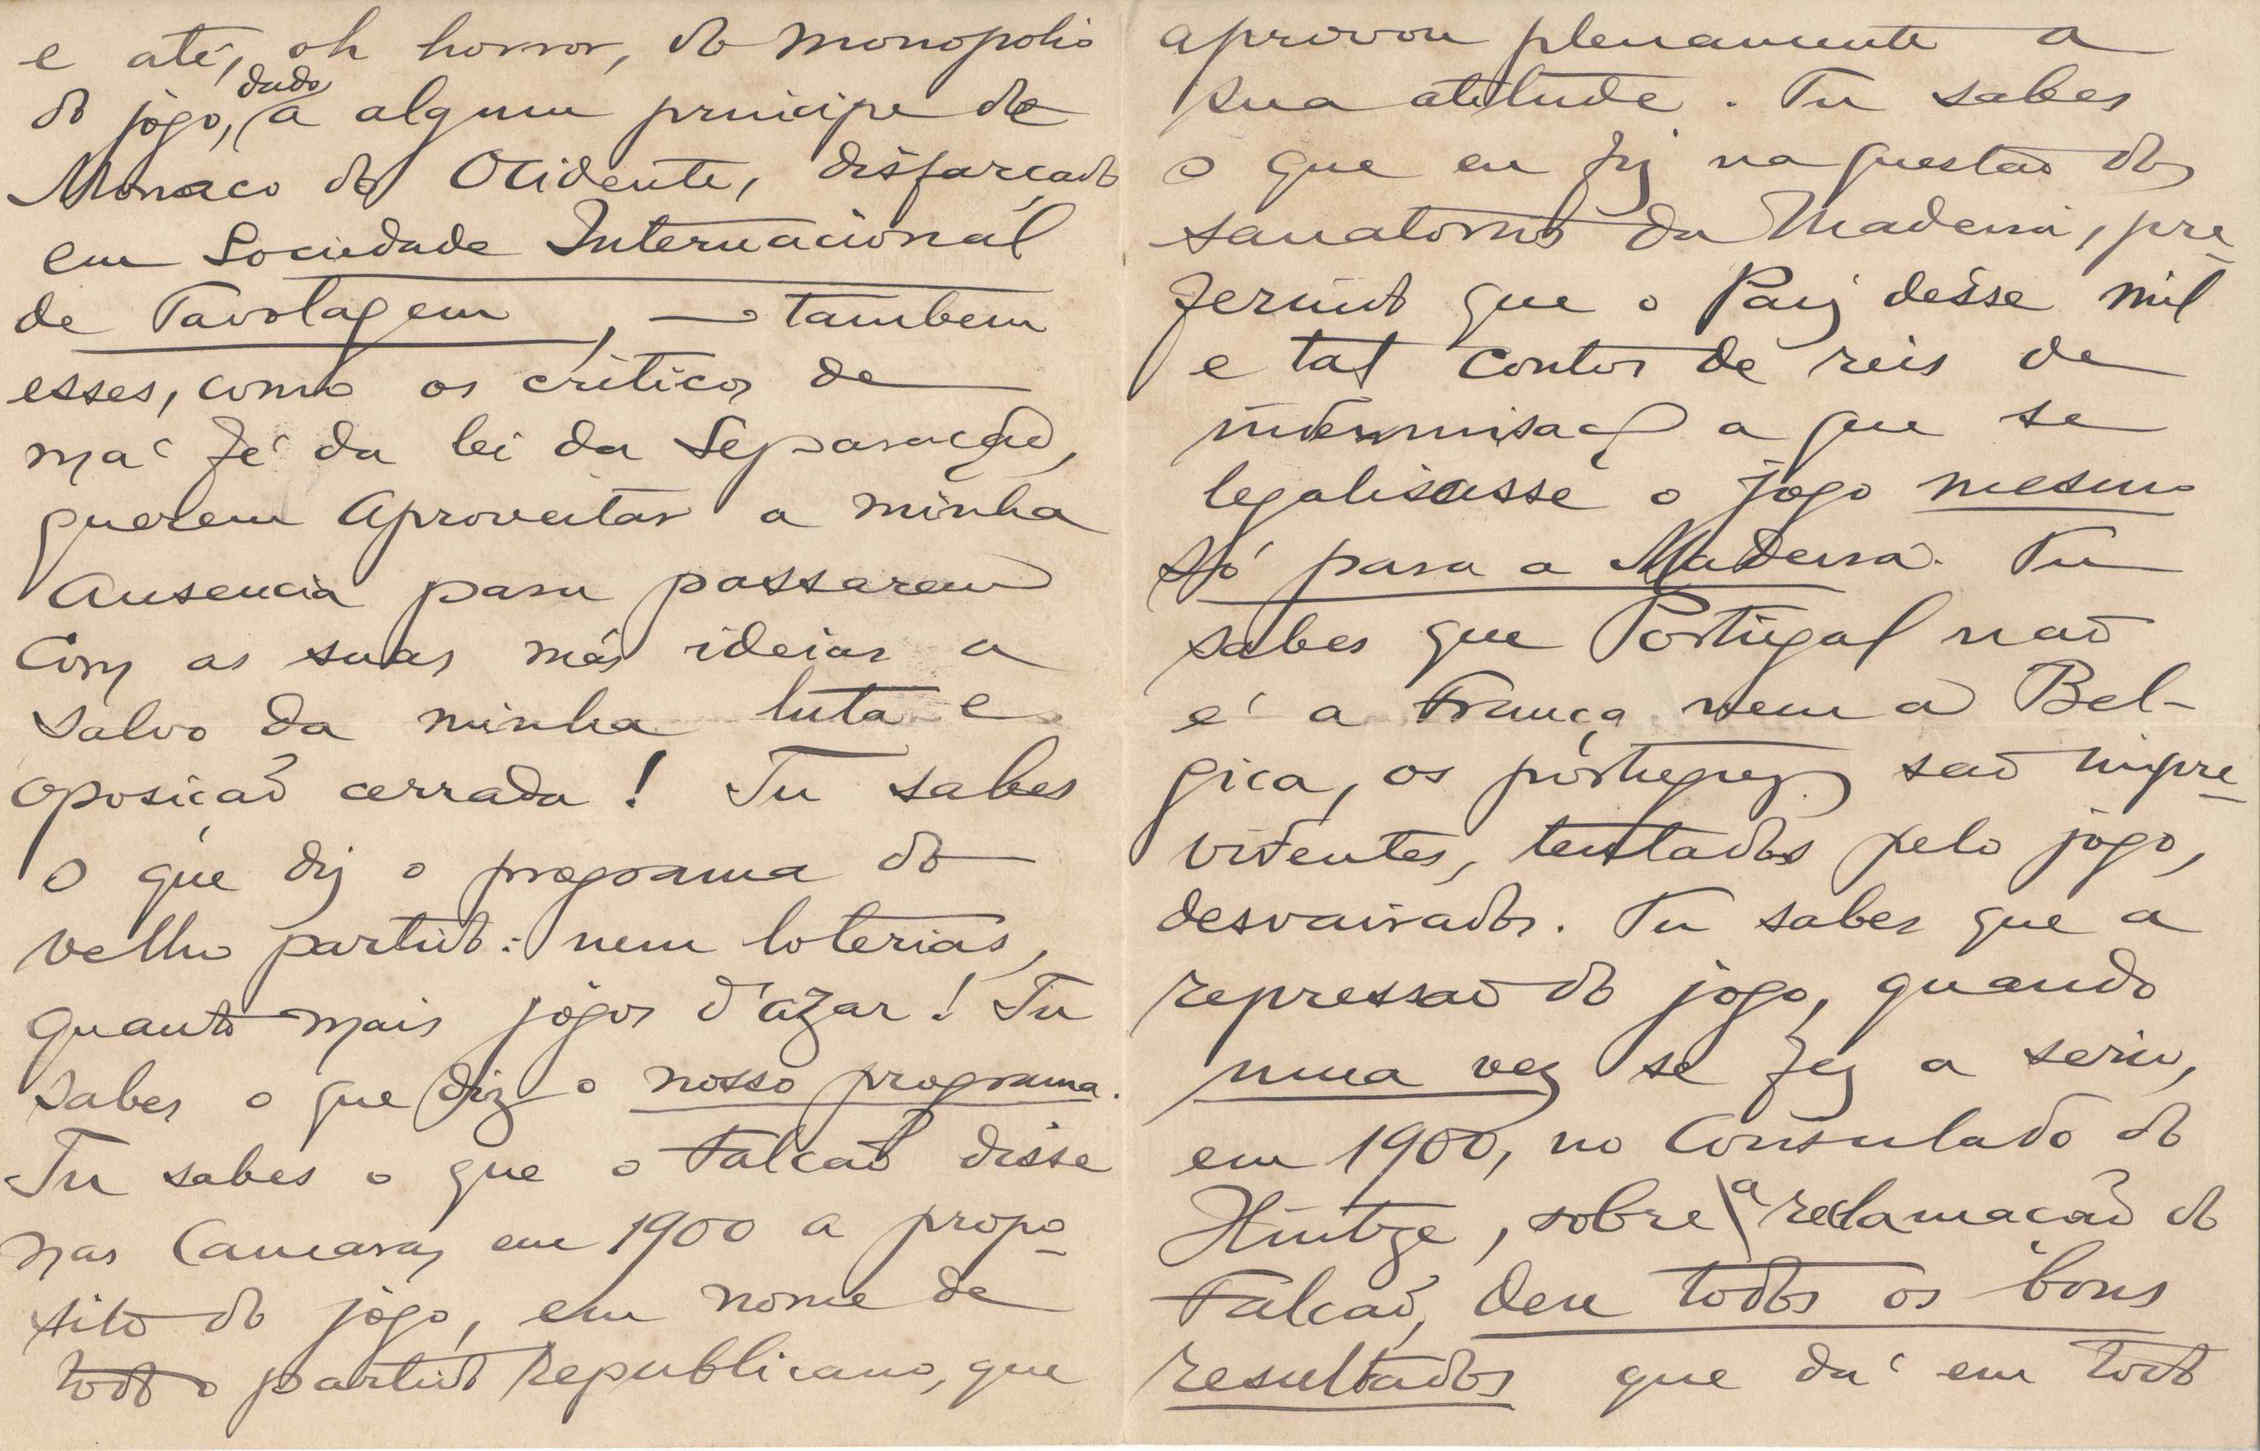 e até, oh horror, do monopolio
do jogo, dado a algum principe de
Monaco do Ocidente, disfarçado
em Sociedade Internacional
de Tavolagem, — tambem
esses, como os criticos de
má fé da lei da Separação,
querem aproveitar a minha
ausencia para passarem
com as suas más ideias a
salvo da minha luta e
oposição cerrada! Tu sabes
o que diz o programa do
velho partido: nem loterias,
quanto mais jogos d'azar! Tu
sabes o que diz o nosso programa.
Tu sabes o que o Falcão disse
nas Camaras em 1900 a propo-
sito do jogo, em nome de
todo o partido republicano, que
aprovou plenamente a
sua atitude. Tu sabes
o que eu fiz na questão dos
sanatorios da Madeira, pre-
ferindo que o Paiz désse mil
e tal contos de réis de
indemnisação a que se
legalisasse o jogo mesmo
só para a Madeira. Tu
sabes que Portugal não
é a França nem a Bel-
gica, os portuguezes são impre-
videntes, tentados pelo jogo,
desvairados. Tu sabes que a
repressão do jogo, quando
uma vez se fez a serio,
em 1900, no Consulado do
Hintze, sobre a reclamação do
Falcão, deu todos os bons
resultados que dá em todo